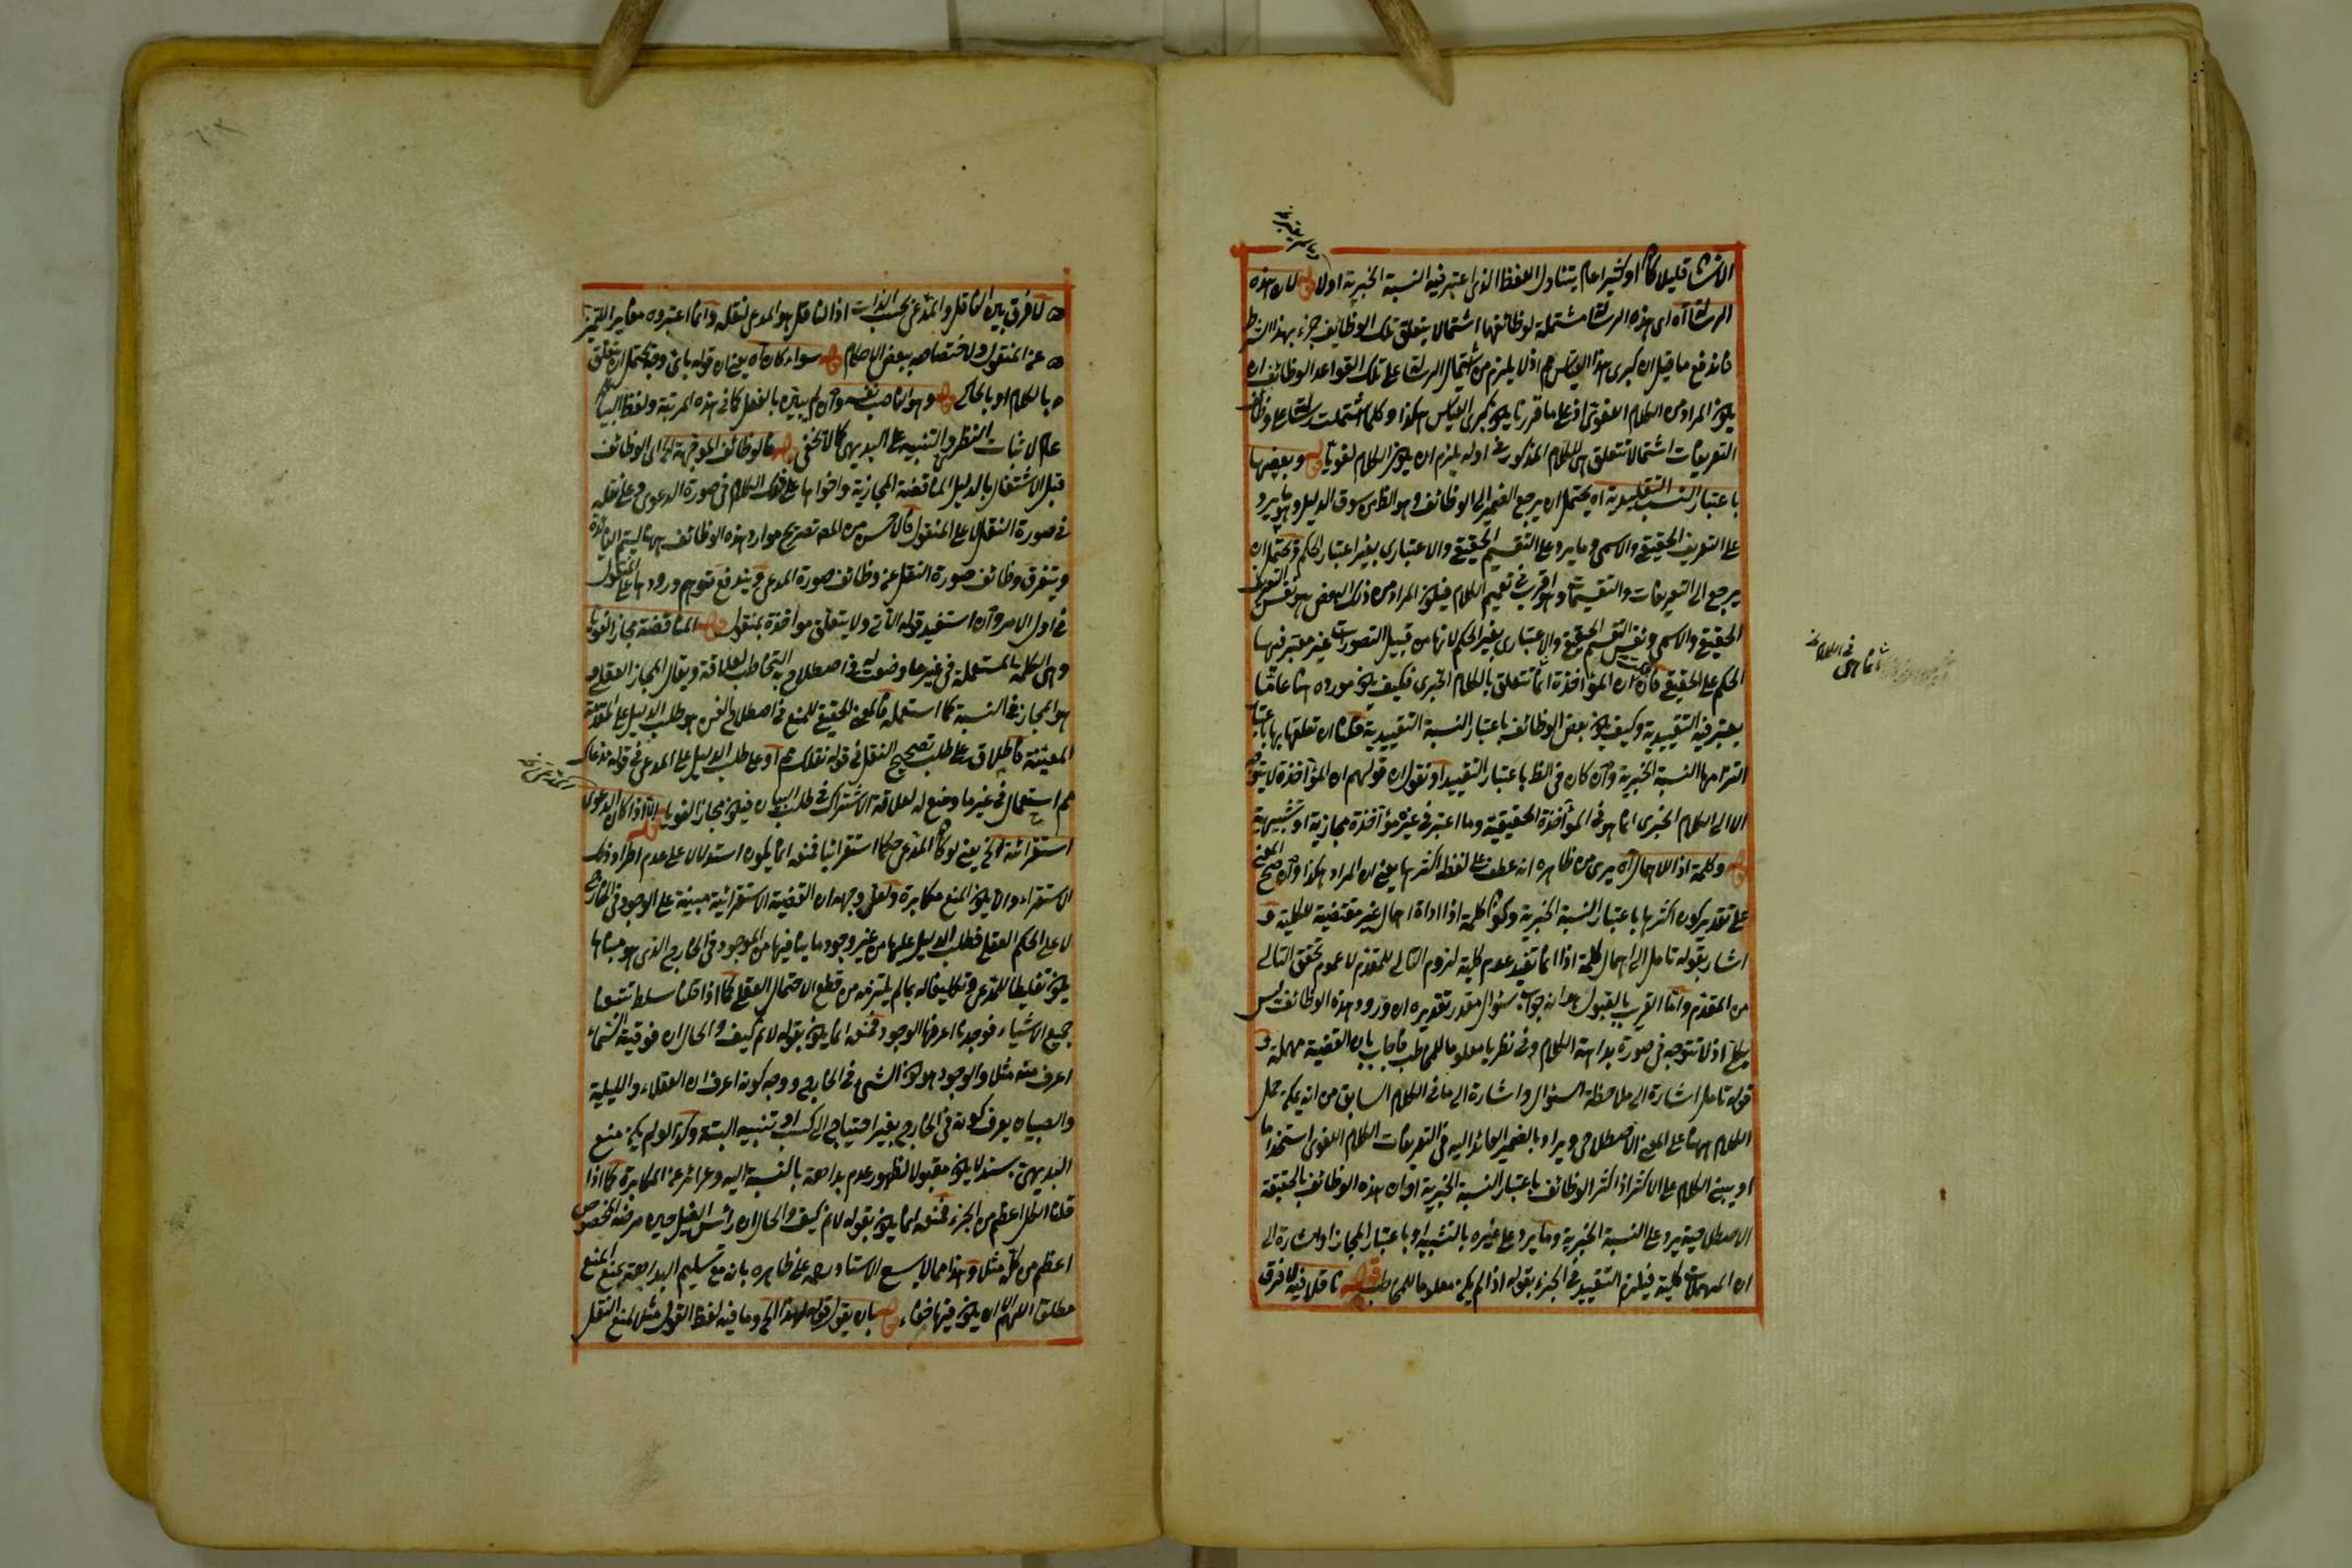 الانشا قليلا كان او كثيرا عام يتناول اللفظ الذى اعتبر فيه النسبة الخبرية اولا قوله لان هذه
الرسالة اه اى هذه الرسالة مشتملة لوظائفها اشتمالا يتعلق تلك الوظائف جزء بهذا
فاندفع ما قيل ان كبرى هذا القياس مم اذ لا يلزم من اشتمال الرسالة على تلك القواعد الوظائف ان
يكون المراد من الكلام اللغوى اذ على ما قررنا يكون كبرى القياس هكذا وكلما اشتملت رسالة على وظائف
التعريفات اشتمالا تتعلق هى للكلام المذكور فى اوله يلزم ان يكون الكلام لغويا قوله وبعضها
باعتبار النسب التقييدية اه يحتمل ان يرجع الضمير الى الوظائف وهو الظ من سوق الدليل وهو ما يرد
على التعريف الحقيقى والاسمى وما يرد على التقسيم الحقيقى والاعتبارى بغير اعتبار الحكم ويحتمل ان
يرجع الى التعريفات والتقسيمات وهو اقرب فى تعميم الكلام فيكون المراد من ذلك البعض هو نفس التعريف
الحقيقى والاسمى ونفس التقسيم الحقيقى والاعتبارى بغير الحكم لانها من قبيل التصورات غير معتبر فيها
الحكم على الحقيقى فان قلت ان المؤاخذة انما تتعلق بالكلام الخبرى فكيف يكون مورده هنا عاما
يعتبر فيه التقييدية وكيف يكون بعض الوظائف باعتبار النسبة التقييدية قلنا ان تعلقها بها باعتبار
التزامها النسبة الخبرية وان كان فى الظ باعتبار التقييد او نقول ان قولهم ان المؤاخذة لا يتوجه
الا الى الكلام الخبرى انما هو فى المؤاخذة الحقيقية وما اعتبر فى غيره مؤاخذة مجازية او تشبيهية
قوله وكلمة اذا للاهمال اه يرى من ظاهره انه عطف على لفظ اكثرها يعنى ان المراد هكذا وان صح المعنى
على تقدير كون اكثرها باعتبار النسبة الخبرية وكون كلمة اذا اداة اهمال غير مقتضية للكلية و
اشار بقوله تامل الى اهمال كلمة اذا انما تفيد عدم كلية لزوم التالى للمقدم لا عموم تحقق التالى
من المقدم واما القريب بالقبول هو انه جواب سؤال مقدر تقديره ان ورود هذه الوظائف ليس
بكلى اذ لا تتوجه فى صورة بداهة الكلام وفى نظريا معلوما للمخاطب فاجاب بان القضية مهملة و
قوله تامل اشارة الى ملاحظة السؤال واشارة الى ما فى الكلام السابق من انه يمكن حمل
الكلام ههنا على المعنى الاصطلاحى ويراد بالضمير العائد اليه فى التعريفات الكلام اللغوى استخداما
او يبنى الكلام على الاكثر اذ اكثر الوظائف باعتبار النسبة الخبرية او ان هذه الوظائف بالحقيقة
الاصطلاحية يرد على النسبة الخبرية وما يرد على غيره بالتشبيه او باعتبار المجاز او اشارة الى
ان المهملات كلية فيلزم التقييد فى الجزء بقوله اذا لم يكن معلوما للمخاطب قوله ناقلا فيه لا فرق
لا فرق بين الناقل والمدعى بحسب الذات اذ الناقل هو المدعى لنقله وانما اعتبروه مغايرا للتميز
عن المنقول ولاختصاصه ببعض الاحكام قوله سواء كان اه يعنى ان قوله باى وجه يحتمل ان يتعلق
بالكلام او بالحاكى قوله وهو الناصب نفسه وان لم يبين بالفعل كما فى هذه المرتبة ولفظ البيان
عام لاثبات النظرى والتنبيه على البديهى كما لا يخفى قوله فالوظائف الموجهة الخ اى الوظائف
قبل الاشتغال بالدليل المناقضة المجازية واخواها على ذلك الكلام فى صورة الدعوى وعلى نقله
فى صورة النقل لا على المنقول فالاحسن من المص تصريح موارد هذه الوظائف ههنا ليتم الفائدة
ويتفرق وظائف صورة النقل عن وظائف صورة المدعى ويندفع توهم ورودها على المنقول
فى اول الامر وان استفيد قوله الآتى ولا يتعلق مواخذة بمنقول قوله المناقضة مجازا لغويا
وهى الكلمة المستعملة فى غير ما وضعت له فى اصطلاح به التخاطب لعلاقة ويقال المجاز العقلى و
هو المجاز فى النسبة كما استعمله فالمعنى الحقيقى للمنع فى اصطلاح الفن هو طلب الدليل على المقدمة
المعينة فاطلاق على طلب تصحيح النقل فى قوله نقلك مم او على طلب الدليل على المدعى فى قوله مدعاك
مم استعمال فى غير ما وضع له لعلاقة الاشتراك فى طلب البيان فيكون مجازا لغويا قوله الا اذا كان الدعوى
استقرائية الخ يعنى لو كان المدعى حكما استقرائيا فمنعه انما يكون استدلالا على عدم اطراد ذلك
الاستقراء والا يكون المنع مكابرة ولعل وجهه ان القضية الاستقرائية مبينة على الوجود فى الخارج
لا على الحكم العقلى فطلب الدليل عليها من غير وجود ما ينافيها من الموجود فى الخارج الذى هو مبناها
يكون تغليطا للمدعى وتكليفا له بما لم يلتزمه من قطع الاحتمال العقلى كما اذا قلنا سلط تتبعنا
جميع الاشياء فوجدنا اعرفها الوجود فمنعه انما يكون بقوله لا نم كيف والحال ان فوقية السماء
اعرف منه مثلا والوجود هو كون الشئ فى الخارج ووجه كونه اعرف ان العقلاء والبليه
والصبيان يعرف كونه فى الخارج بغير احتياج الى كسب او تنبيه البتة وكذا لو لم يكن منع
البديهى بسند لا يكون مقبولا لظهور عدم بداهته بالنسبة اليه وعرائه عن المكابرة كما اذا
قلنا الكل اعظم من الجزء فمنعه انما يكون بقوله لا نم كيف والحال ان رأس الفيل حين مرضه المخصوص
اعظم من كله مثلا وهذا مما لا يسع الاستاد رحمه على ظاهره بانه مع تسليم البداهة يمنع المنع
مطلقا اللهم الا ان يكون فيها خفاء قوله بان يقول قوله لهذا الخ وما فيه لفظ القول مثل منع النقل